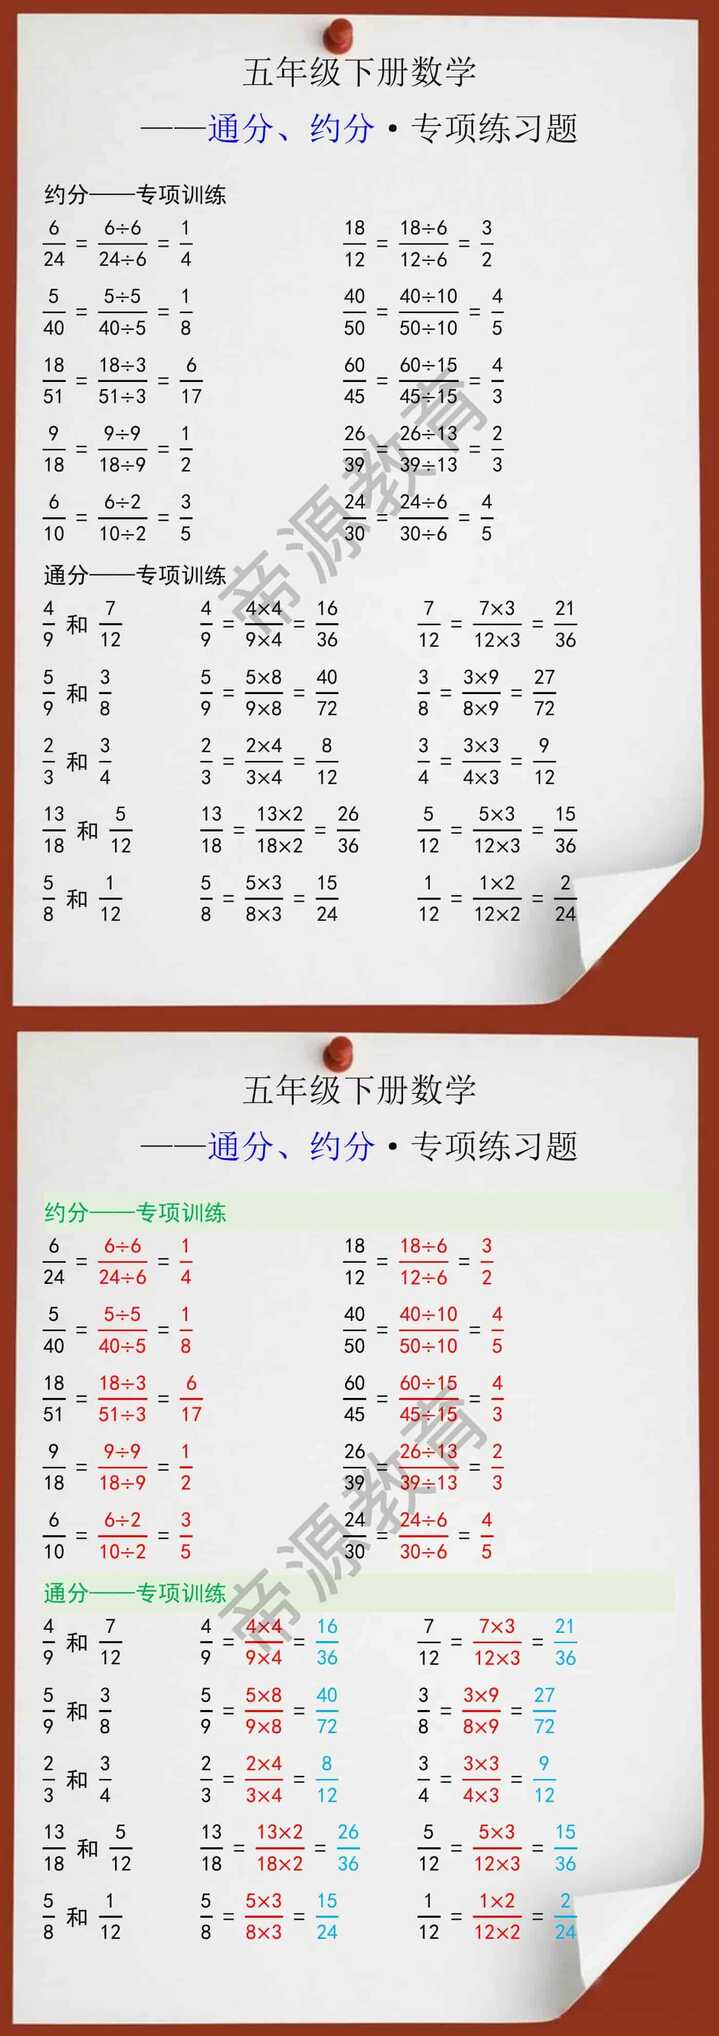 五年级下册数学
——通分、约分·专项练习题
约分——专项训练
6/24 = 6÷6/24÷6 = 1/4 18/12 = 18÷6/12÷6 = 3/2
5/40 = 5÷5/40÷5 = 1/8 40/50 = 40÷10/50÷10 = 4/5
18/51 = 18÷3/51÷3 = 6/17 60/45 = 60÷15/45÷15 = 4/3
9/18 = 9÷9/18÷9 = 1/2 26/39 = 26÷13/39÷13 = 2/3
6/10 = 6÷2/10÷2 = 3/5 24/30 = 24÷6/30÷6 = 4/5
通分——专项训练
4/9 和 7/12 4/9 = 4×4/9×4 = 16/36 7/12 = 7×3/12×3 = 21/36
5/9 和 3/8 5/9 = 5×8/9×8 = 40/72 3/8 = 3×9/8×9 = 27/72
2/3 和 3/4 2/3 = 2×4/3×4 = 8/12 3/4 = 3×3/4×3 = 9/12
13/18 和 5/12 13/18 = 13×2/18×2 = 26/36 5/12 = 5×3/12×3 = 15/36
5/8 和 1/12 5/8 = 5×3/8×3 = 15/24 1/12 = 1×2/12×2 = 2/24
帝源教育
五年级下册数学
——通分、约分·专项练习题
约分——专项训练
6/24 = 6÷6/24÷6 = 1/4 18/12 = 18÷6/12÷6 = 3/2
5/40 = 5÷5/40÷5 = 1/8 40/50 = 40÷10/50÷10 = 4/5
18/51 = 18÷3/51÷3 = 6/17 60/45 = 60÷15/45÷15 = 4/3
9/18 = 9÷9/18÷9 = 1/2 26/39 = 26÷13/39÷13 = 2/3
6/10 = 6÷2/10÷2 = 3/5 24/30 = 24÷6/30÷6 = 4/5
通分——专项训练
4/9 和 7/12 4/9 = 4×4/9×4 = 16/36 7/12 = 7×3/12×3 = 21/36
5/9 和 3/8 5/9 = 5×8/9×8 = 40/72 3/8 = 3×9/8×9 = 27/72
2/3 和 3/4 2/3 = 2×4/3×4 = 8/12 3/4 = 3×3/4×3 = 9/12
13/18 和 5/12 13/18 = 13×2/18×2 = 26/36 5/12 = 5×3/12×3 = 15/36
5/8 和 1/12 5/8 = 5×3/8×3 = 15/24 1/12 = 1×2/12×2 = 2/24
帝源教育